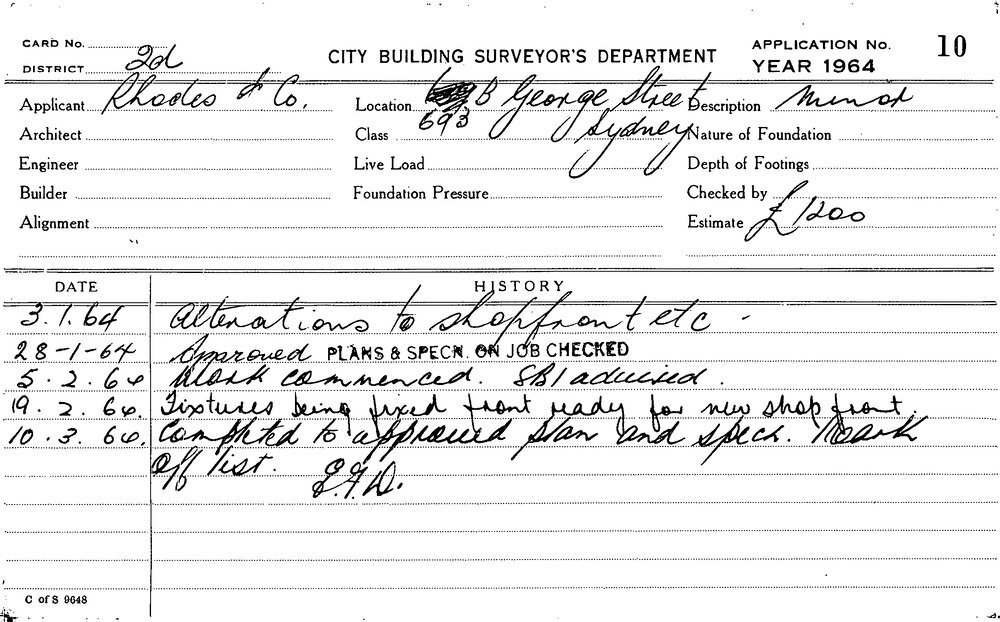 CARD No.
CITY BUILDING SURVEYOR'S DEPARTMENT
APPLICATION No. 10
DISTRICT 2d
YEAR 1964
Applicant Rhodes & Co. Location B George Street Description Minor
693
Architect Class Sydney Nature of Foundation
Engineer Live Load Depth of Footings
Builder Foundation Pressure Checked by
Alignment Estimate £1200
DATE HISTORY
3.1.64 Alterations to shopfront etc -
28-1-64 Approved PLANS & SPECN. ON JOB CHECKED
5.2.64 Work commenced. SBI advised.
19.2.64. Fixtures being fixed front ready for new shop front.
10.3.64. Completed to approved plan and specn. Mark
off list.
C of S 9648